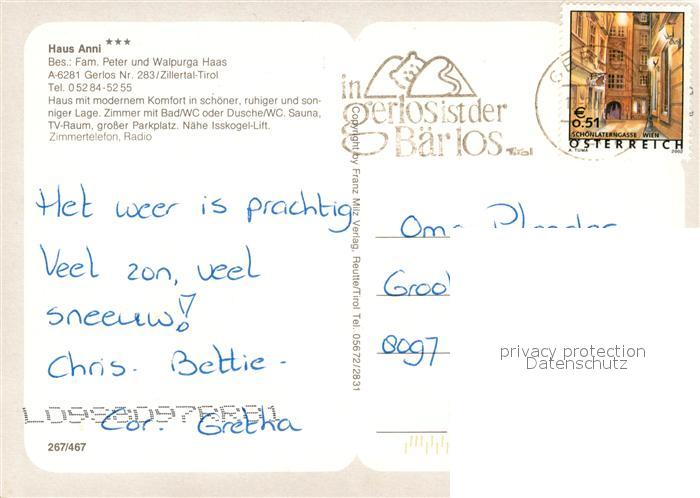 Haus Anni ***
Bes.: Fam. Peter und Walpurga Haas
A-6281 Gerlos Nr. 283/Zillertal-Tirol
Tel. 0 52 84-52 55
Haus mit modernem Komfort in schöner, ruhiger und son-
niger Lage. Zimmer mit Bad/WC oder Dusche/WC. Sauna,
TV-Raum, großer Parkplatz. Nähe Isskogel-Lift.
Zimmertelefon, Radio
Het weer is prachtig
Veel zon, veel
sneeuw!
Chris. Bettie-
Cor. Gretha
267/467
Copyright by Franz Milz Verlag, Reutte/Tirol Tel. 05672/2831
in
gerlos ist der
Bär los
Tirol
€
0.51
SCHÖNLATERNGASSE WIEN
ÖSTERREICH
A. TUMA 2002
Oma
8097
privacy protection
Datenschutz